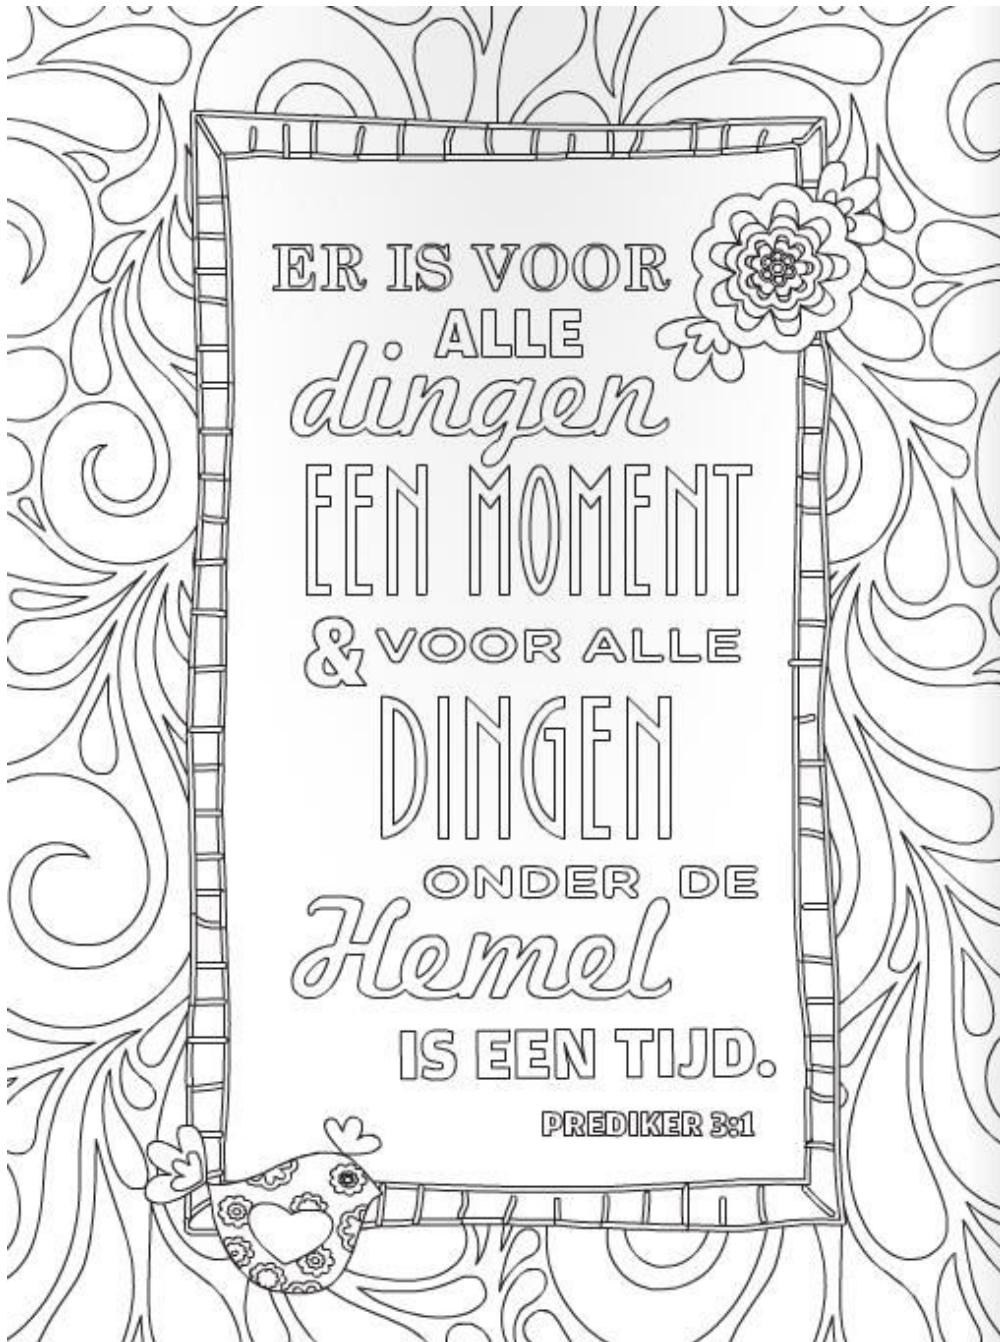 ER IS VOOR
ALLE
dingen
EEN MOMENT
& VOOR ALLE
DINGEN
ONDER DE
Hemel
IS EEN TIJD.
PREDIKER 3:1